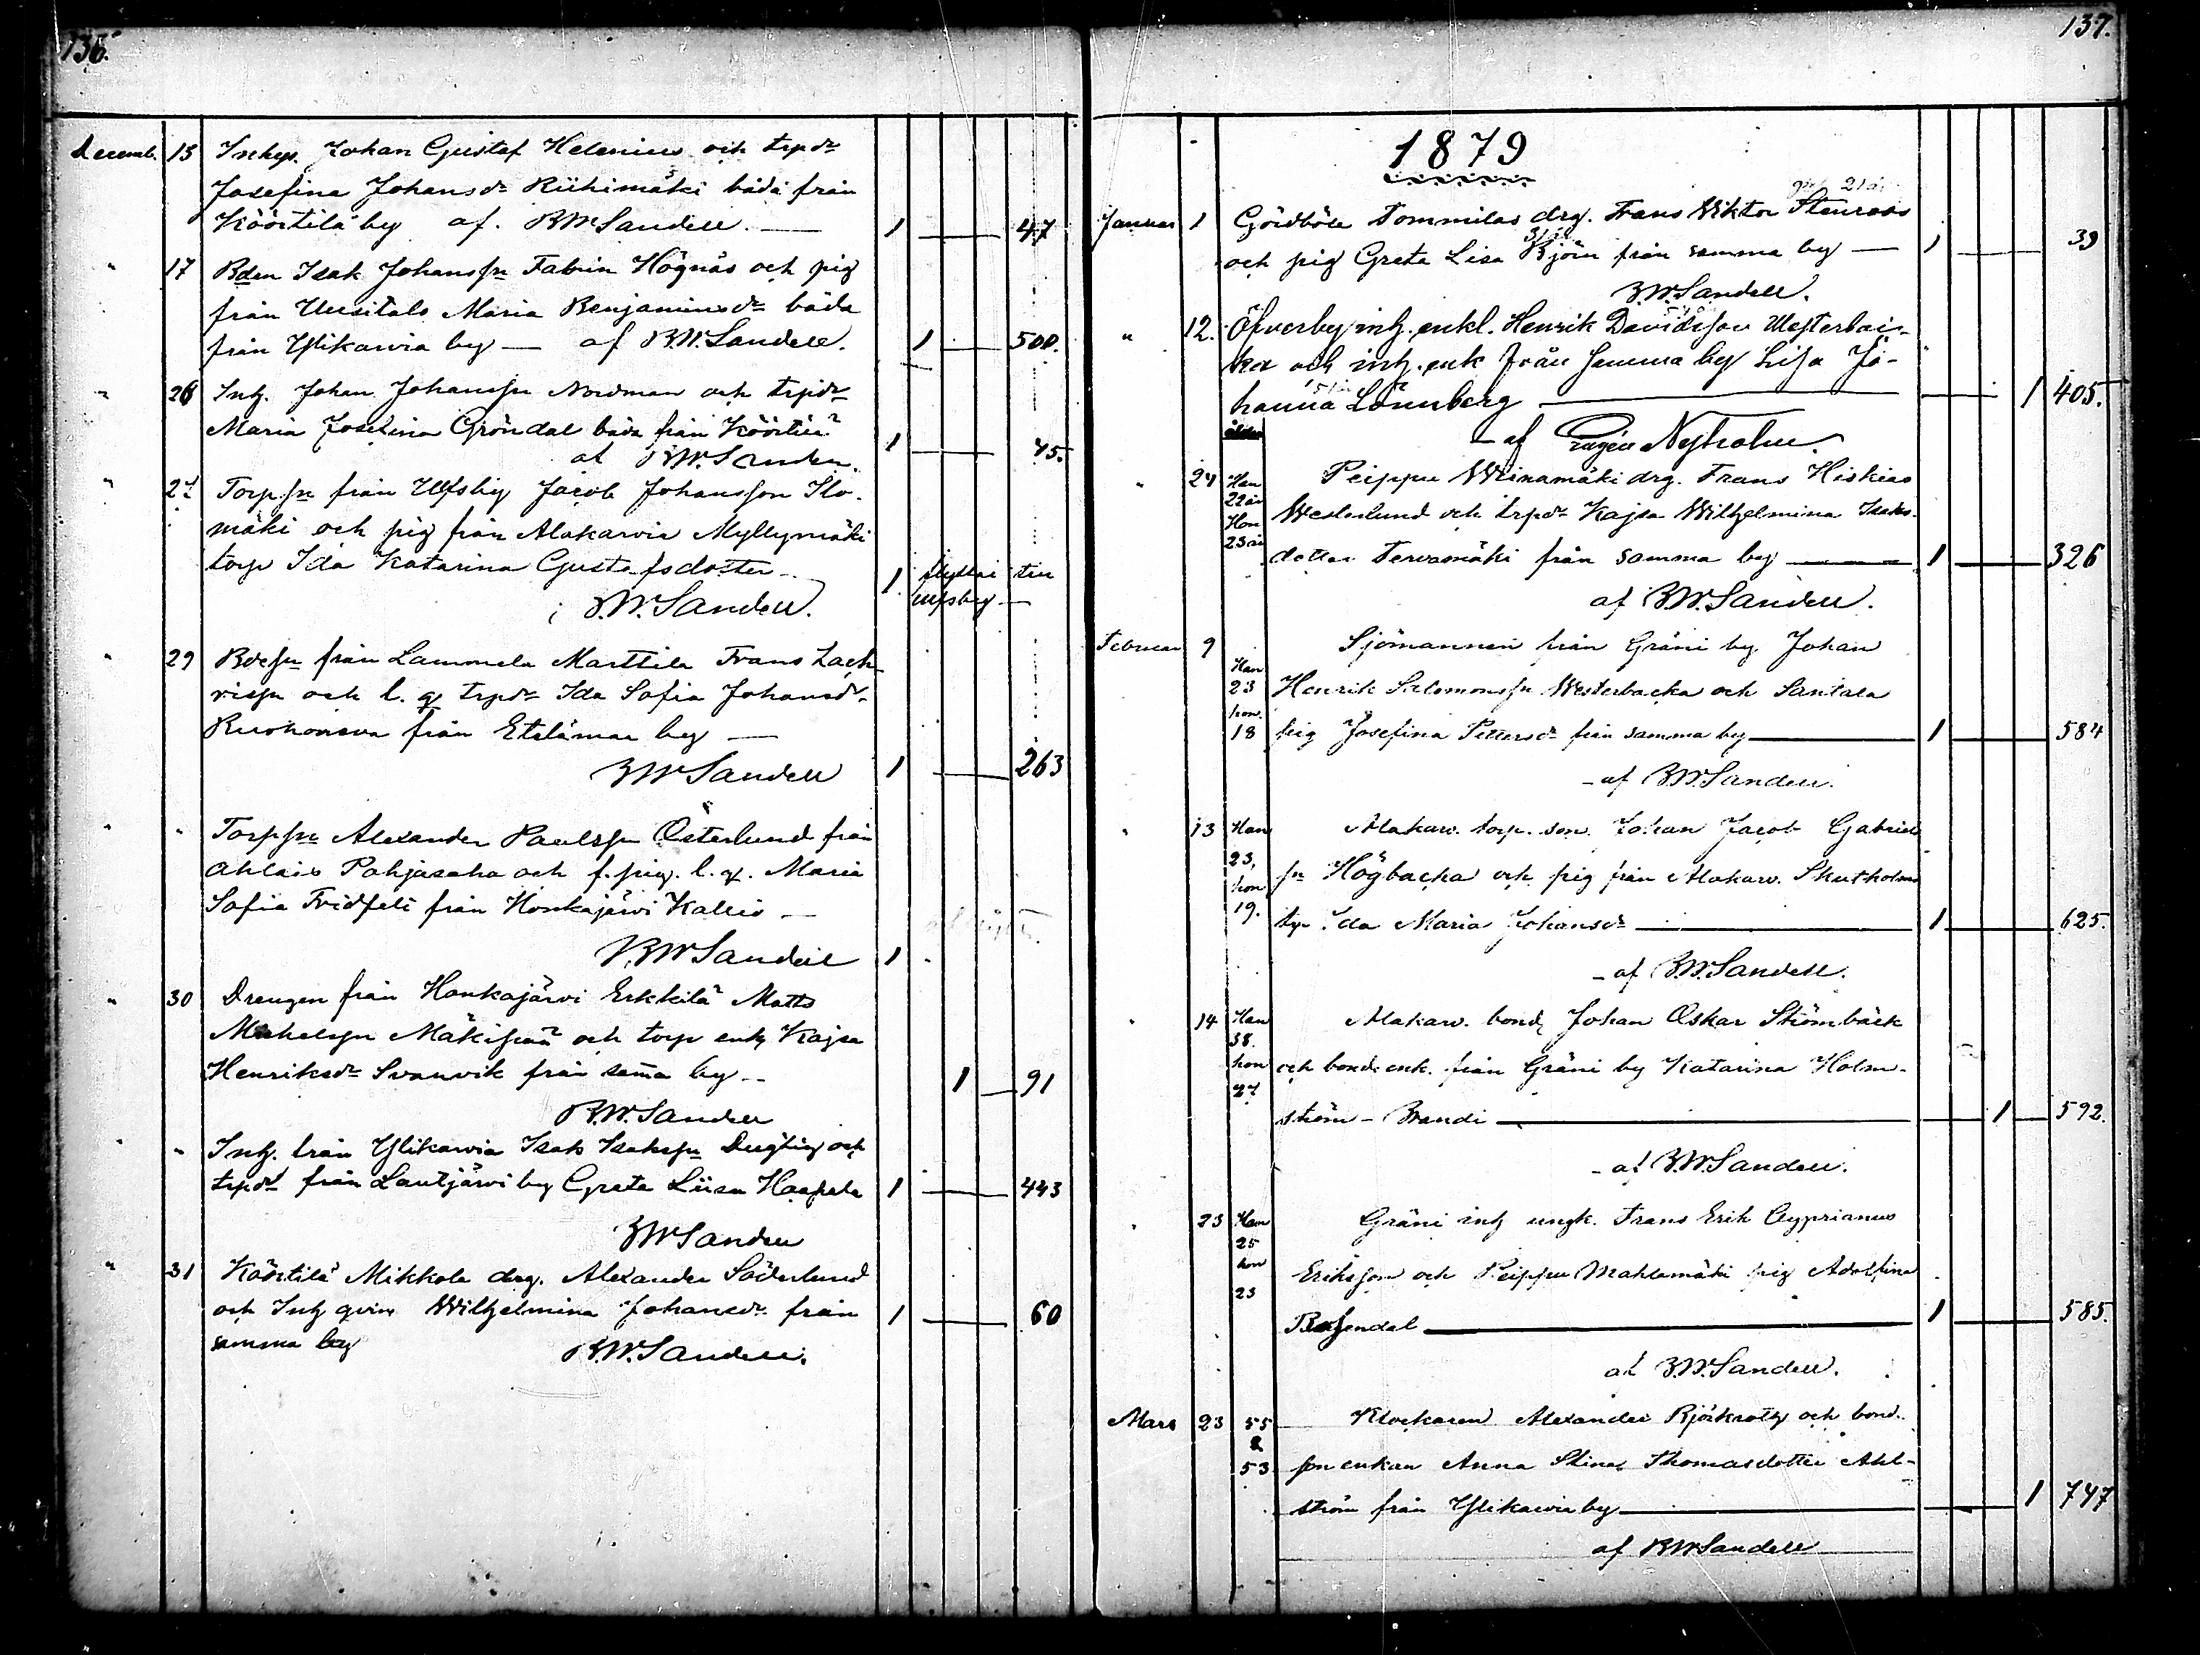 136.
Decemb. 15 Inhys. Johan Gustaf Helenius och trpdr
Josefina Johansdr Riihimäki båda från
Köörtilä by af. B.W. Sandell. — 1 47
" 17 Bden Isak Johanssn Fabrin Högnäs och pig
från Uusitalo Maria Benjaminsdr båda
från Ylikarvia by — af B.W. Sandell. 1 500.
" 26 Inh. Johan Johanssn Nordman och trpdr
Maria Josefina Gröndal båda från Köörtilä
af B.W. Sandell. 1 45.
" 27 Torp.sn från Ulfsby Jacob Johansson Ilo-
mäki och pig från Alakarvia Myllymäki
torp Ida Katarina Gustafsdotter — 1 flyttai till
B.W. Sandell. Ulfsby —
" 29 Bdesn från Lammela Marttila Frans Zach-
rissn och l. q trpdr Ida Sofia Johansdr
Ruohoneva från Etelämaa by —
B.W. Sandell 1 263
" " Torpsn Alexander Paulssn Österlund från
Ahlais Pohjasaha och f. pig. l. q. Maria
Sofia Fridfelt från Honkajärvi Kallio —
B.W. Sandell 1
" 30 Drengen från Honkajärvi Erkkilä Matts
Michelsn Mäkipää och torp enk Kajsa
Henriksdr Svanvik från sama by — 1 91
B.W. Sandell
" Inh. från Ylikarvia Isak Isakssn Dugtig och
trpdr från Lautjärvi by Greta Liisa Haapala 1 443
B.W. Sandell
" 31 Köörtilä Mikkola drg. Alexander Söderlund
och Inh qvin Wilhelmina Johansdr från 1 60
samma by B.W. Sandell.
137.
1879
21 år
Januari 1 Gördböle Tommilas drg. Frans Viktor Stenroos
och pig Greta Lisa Björn från samma by — 1 39
B.W. Sandell.
" 12. Öfverby inh. enkl. Henrik Davidsson Westerbac-
ka och inh. enk från samma by Lisa Jo-
hanna Lönnberg — 1 405.
af Eugén Nyholm.
" 24 Han Peippu Wiinamäki drg. Frans Hiskias
22 år Westerlund och trpdr Kajsa Wilhelmina Isaks-
Hon
23 år dotter Tervamäki från samma by — 1 326
af B.W. Sandell.
Februari 9 Sjömannen från Gräni by Johan
Han
23 Henrik Salomonssn Westerbacka och Santala
hon.
18 pig Josefina Pettersdr från samma by — 1 584
af B.W. Sandell.
" 13 Han Alakarv. torp. son. Johan Jacob Gabriels
23, sn Högbacka och pig från Alakarv. Skutholms
hon
19. trp. Ida Maria Johansdr — 1 625.
af B.W. Sandell.
" 14 Han Alakarv. bond Johan Oskar Strömbäck
38.
hon och bond. enk. från Gräni by Katarina Holm-
27
ström - Brandi — 1 592.
af B.W. Sandell.
" 23 Han Gräni inh ungk. Frans Erik Cyprianus
25
hon Eriksson och Peippu Mahlamäki pig Adolfina
23
Rosendal — 1 585.
af B.W. Sandell.
Mars 23 55 Klockaren Alexander Björkroth och bond.
&
53 son enkan Anna Stina Thomasdotter Ahl-
ström från Ylikarvia by — 1 747
af B.W. Sandell